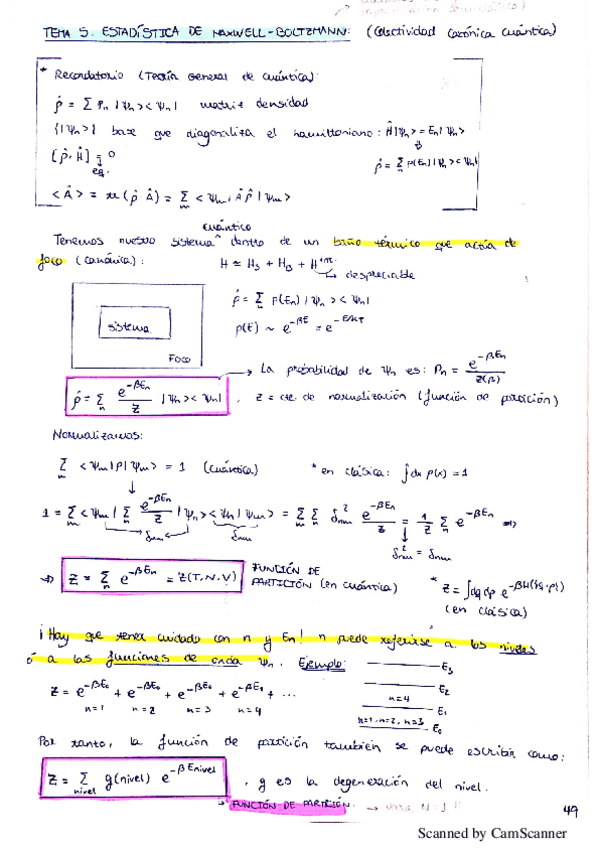 TEMA 5. ESTADÍSTICA DE MAXWELL-BOLTZMANN: (Colectividad Canónica Cuántica)
* Recordatorio (Teoría General de Cuántica):
ρ̂ = Σ Pn |Ψn><Ψn| matriz densidad
{|Ψn>} base que diagonaliza el hamiltoniano: Ĥ|Ψn> = En|Ψn>
[ρ̂, Ĥ] = 0
eq.
ρ̂ = Σn p(En) |Ψn><Ψn|
<Â> = tr(ρ̂ Â) = Σm <Ψm| Â ρ̂ |Ψm>
cuántico
Tenemos nuestro sistema dentro de un baño térmico que actúa de
foco (canónica): H ≃ HS + HB + H^int
↳ despreciable
sistema
Foco
ρ̂ = Σn p(En) |Ψn><Ψn|
p(E) ~ e^-βE = e^-E/kT
→ La probabilidad de Ψn es: Pn = e^-βEn / Z(β)
ρ̂ = Σn e^-βEn / Z |Ψn><Ψn| , Z = cte. de normalización (función de partición)
Normalizamos:
Σm <Ψm|ρ|Ψm> = 1 (cuántica) * en clásica: ∫dx p(x) = 1
1 = Σm <Ψm| Σn e^-βEn / Z |Ψn><Ψn|Ψm> = Σm Σn δ²nm e^-βEn / Z = 1/Z Σn e^-βEn ⇒
δnm δnm δ²nm = δnm
⇒ Z = Σn e^-βEn = Z(T,N,V) FUNCIÓN DE PARTICIÓN (en cuántica) * Z = ∫dq dp e^-βH({q,p})
(en clásica)
¡Hay que tener cuidado con n y En! n puede referirse a los niveles
ó a las funciones de onda Ψn. Ejemplo:
E3
E2
n=4
E1
n=1, n=2, n=3
E0
Z = e^-βE0 + e^-βE0 + e^-βE0 + e^-βE1 + ...
n=1 n=2 n=3 n=4
Por tanto, la función de partición también se puede escribir como:
Z = Σnivel g(nivel) e^-βEnivel , g es la degeneración del nivel.
↳ FUNCIÓN DE PARTICIÓN. → para N=1
49
Scanned by CamScanner